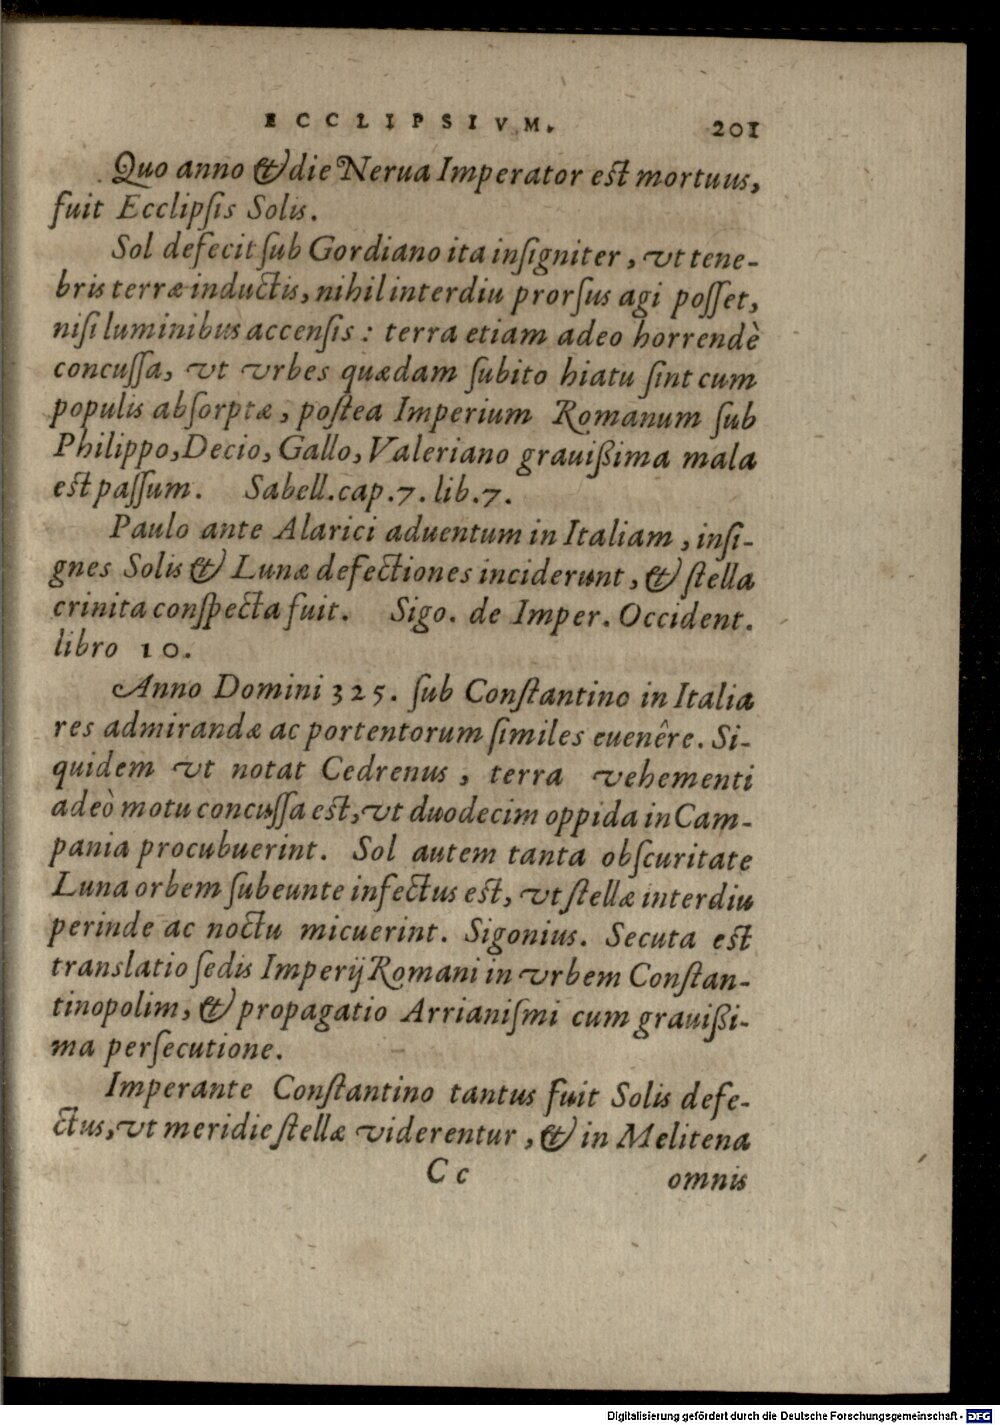 ECCLIPSIVM. 201
Quo anno & die Nerua Imperator est mortuus,
fuit Ecclipsis Solis.
Sol defecit sub Gordiano ita insigniter, vt tene-
bris terræ inductis, nihil interdiu prorsus agi posset,
nisi luminibus accensis: terra etiam adeo horrendè
concussa, vt vrbes quædam subito hiatu sint cum
populis absorptæ, postea Imperium Romanum sub
Philippo, Decio, Gallo, Valeriano grauißima mala
est passum. Sabell. cap. 7. lib. 7.
Paulo ante Alarici aduentum in Italiam, insi-
gnes Solis & Lunæ defectiones inciderunt, & stella
crinita conspecta fuit. Sigo. de Imper. Occident.
libro 10.
Anno Domini 325. sub Constantino in Italia
res admirandæ ac portentorum similes euenêre. Si-
quidem vt notat Cedrenus, terra vehementi
adeò motu concussa est, vt duodecim oppida in Cam-
pania procubuerint. Sol autem tanta obscuritate
Luna orbem subeunte infectus est, vt stellæ interdiu
perinde ac noctu micuerint. Sigonius. Secuta est
translatio sedis Imperij Romani in vrbem Constan-
tinopolim, & propagatio Arrianismi cum grauißi-
ma persecutione.
Imperante Constantino tantus fuit Solis defe-
ctus, vt meridie stellæ viderentur, & in Melitena
Cc omnis
Digitalisierung gefördert durch die Deutsche Forschungsgemeinschaft - DFG